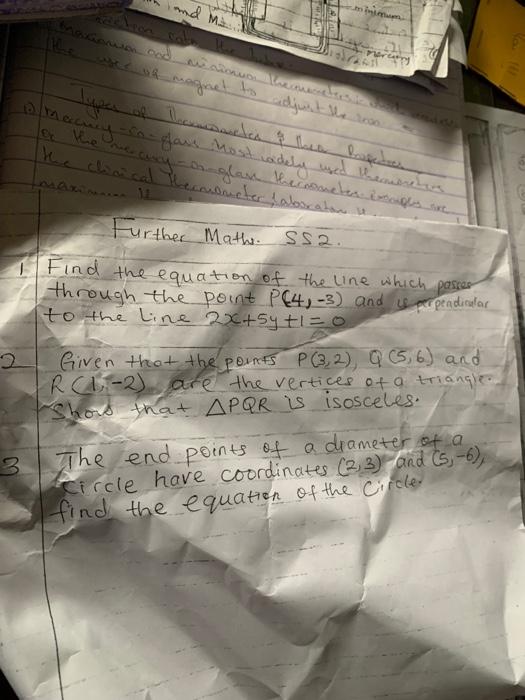 and M
minimum
mercury
maximum and minimum thermometers
the use of magnet to adjust the iron
Types of Thermometer & their Properties
1) mercury-in-glass most widely used thermometers
the mercury-in-glass thermometer. examples are
the clinical thermometer, laboratory
Further Maths. SS2.
1 Find the equation of the line which passes
through the point P(4,-3) and is perpendicular
to the line 2x+5y+1=0
2 Given that the points P(3,2), Q(5,6) and
R(1,-2) are the vertices of a triangle.
Show that △PQR is isosceles.
3 The end points of a diameter of a
circle have coordinates (2,3) and (5,-6),
find the equation of the circle.